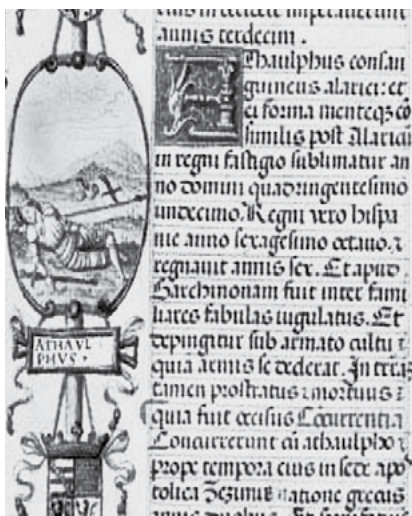 annis terdecim .
Athaulphus consan
guineus alarici: et
ei forma menteq₃ cō
similis post Alarici
in regni fastigio sublimatur an
no domini quadringentesimo
undecimo. Regni vero hispa
nie anno sexagesimo octavo. ⁊
regnauit annis sex. Et apud
Barchinonam fuit inter fami
liares fabulas iugulatus. Et
depingitur sub armato cultu ⁊
quia armis se dederat. In terra
tamen prostratus ⁊ mortuus ⁊
quia fuit occisus Concurrentia
Concurrerunt cū athaulpho ⁊
prope tempora eius in sede apo
tolica Zezimus natione grecus
annis duobus. Et
ATHAVL
PHVS ·